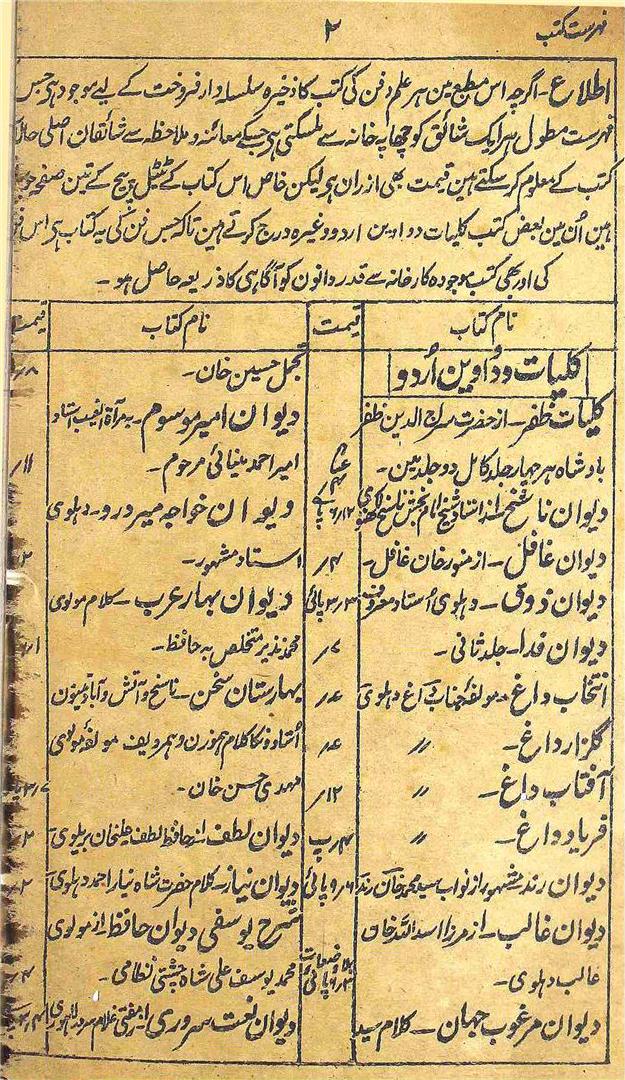 فہرست کتب
۲
اطلاع۔ اگرچہ اس مطبع مین ہر علم و فن کی کتب کا ذخیرہ سلسلہ وار فروخت کے لیے موجود ہی جس
فہرست مطول ہر ایک شائق کو چھاپہ خانہ سے ملسکتی ہی جسکے معائنہ و ملاحظہ سے شائقان اصلی
کتب کے معلوم کر سکتے ہین قیمت بھی ارزان ہی لیکن خاص اس کتاب کے ٹیٹل پیج کے تین صفحہ
ہین اُن مین بعض کتب کلیات دواوین اردو وغیرہ درج کرتے ہین تاکہ جس فن کی یہ کتاب ہی اس
کی اور بھی کتب موجودہ کارخانہ سے قدردانون کو آگاہی کا ذریعہ حاصل ہو۔
نام کتاب
قیمت
کلیات و دواوین اُردو
کلیات ظفر۔ از حضرت سراج الدین ظفر
بادشاہ ہر چہار جلد کامل دو جلد مین۔
دیوان ناسخ۔ از استاد شیخ امام بخش ناسخ لکھنوی
دیوان غافل۔ از منور خان غافل۔ ۴؍
دیوان ذوق۔ دہلوی اُستاد معروف ۳؍۳ پائی
دیوان فدا۔ جلد ثانی۔ ۲؍
انتخاب داغ۔ مولفہ جناب داغ دہلوی ۸؍
گلزار داغ۔ ؍؍ ۸؍
آفتاب داغ۔ ؍؍ ۱۲؍
فریاد داغ۔ ؍؍
دیوان رند مشہور از نواب سید محمد خان رند ۶؍۹ پائی
دیوان غالب۔ از مرزا اسد اللہ خان
غالب دہلوی۔
دیوان مرغوب جہان۔ کلام سید
نام کتاب
قیمت
تجمل حسین خان۔ ۸؍
دیوان امیر موسوم۔ بہ مرآۃ الغیب استاد
امیر احمد مینائی مرحوم۔ ۱۱؍
دیوان خواجہ میر درد۔ دہلوی
استاد مشہور۔ ۲
دیوان بہار عرب۔ کلام مولوی
محمد نذیر متخلص بہ حافظ۔
بہارستان سخن۔ ناسخ و آتش و آباد تینون
اُستادونکا کلام ہموزن و ہمردیف مولفہ مولوی
مہدی حسن خان۔
دیوان لطف از حافظ لطف علیخان بریلوی ۲
دیوان نیاز۔ کلام حضرت شاہ نیاز احمد دہلوی ۲
شرح یوسفی دیوان حافظ از مولوی
محمد یوسف علی شاہ چشتی نظامی۔
دیوان نعت سروری از مفتی غلام سرور لاہوری